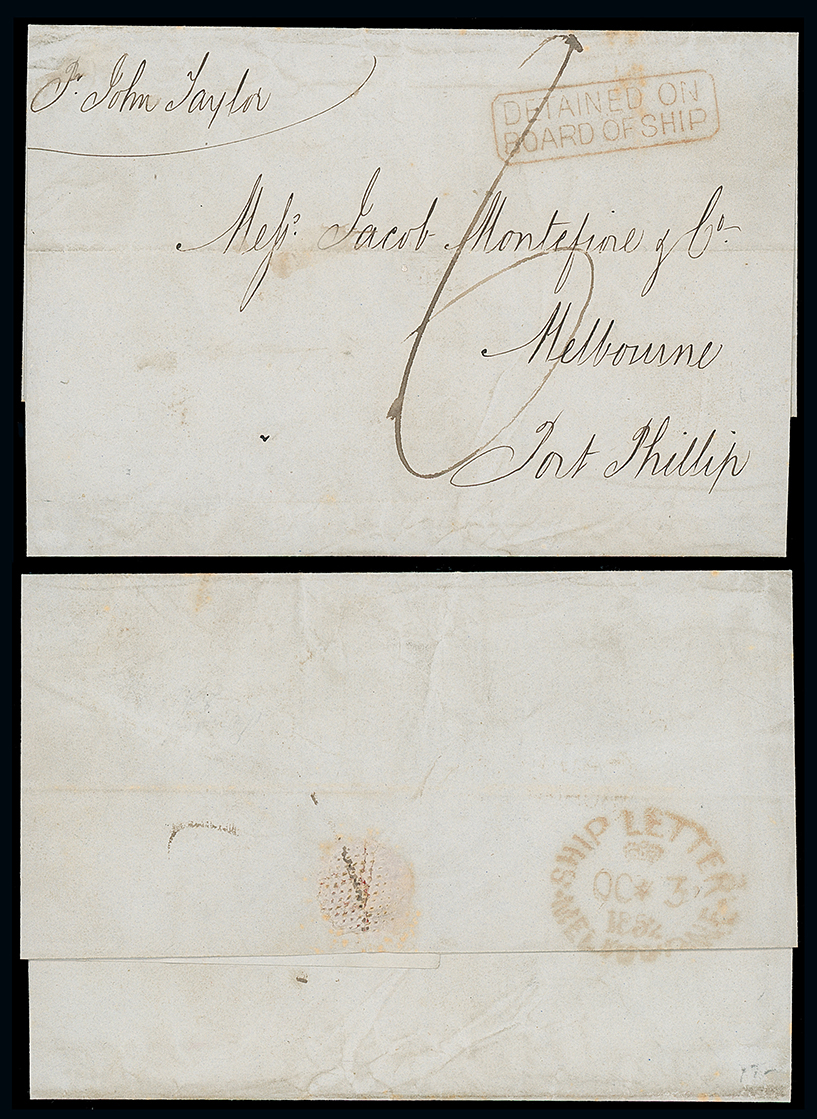 Pr. John Taylor
DETAINED ON
BOARD OF SHIP
Messs. Jacob Montefiore & Co
Melbourne
Port Phillip
6
SHIP LETTER
OC 3
1852
MELBOURNE